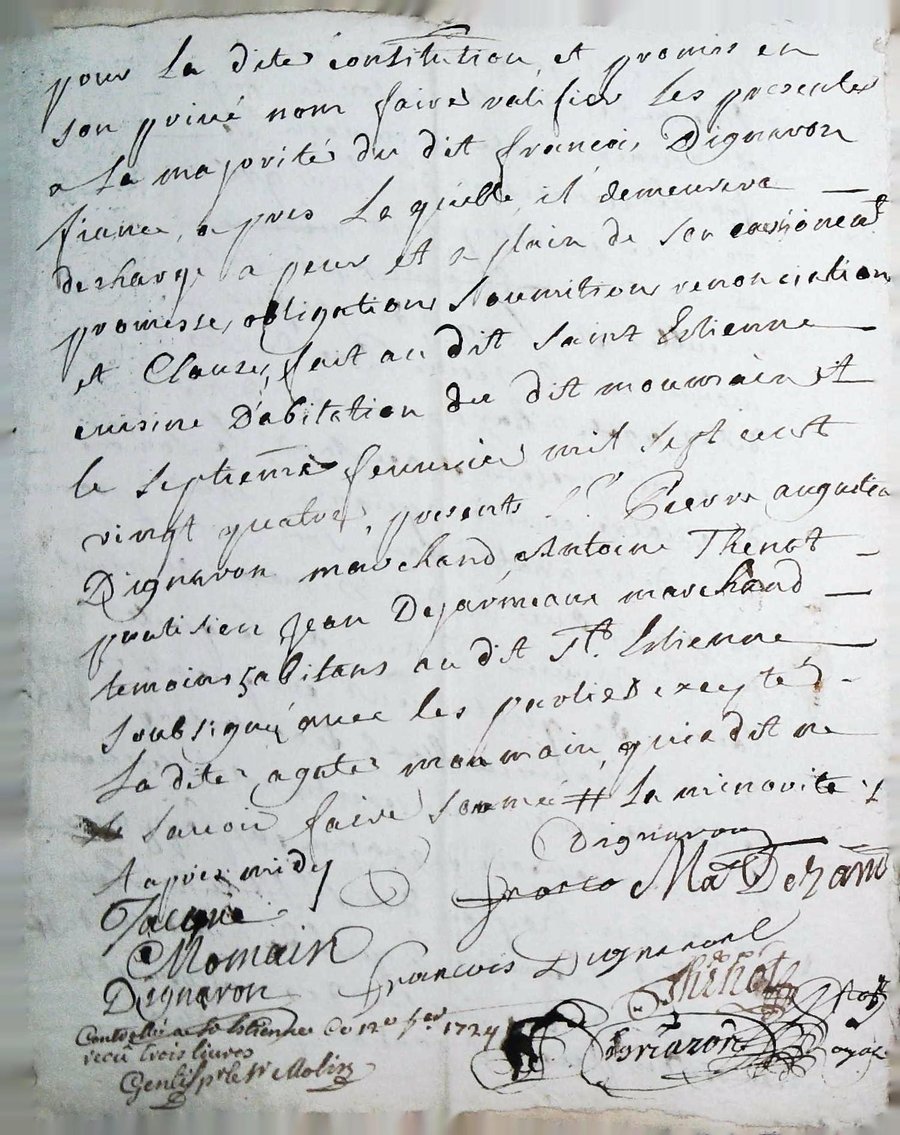 pour la dite constitution, et promis en
son privé nom faire ratifier les presentes
a la majorité du dit francois Dignaron
fiance, apres la quelle, il demeurera
descharge a peur et a plain de son cautionent
promesse, obligations soumitions renonciation
et Clause, fait au dit saint Estienne
cuisine D'abitation du dit moumain et
le septieme feuvrier mil sept cent
vingt quatre, presents Sr Pierre augustin
Dignaron marchand Antoine Thenot
pratisien Jean Dejarmeaux marchand
temoins habitans au dit St. Estienne
soubsigné avec les parties excepté
La dite agate moumain, qui a dit ne
savoir faire sommé # la minorite
Et apres midy
Dignaron
Jacque
Momain
Ma Dezam
Dignaron
francois Dignaron
Thenot
Controllé a St Estienne Ce 12e fer 1724
recu trois livres
Genlis pr le Sr Molin